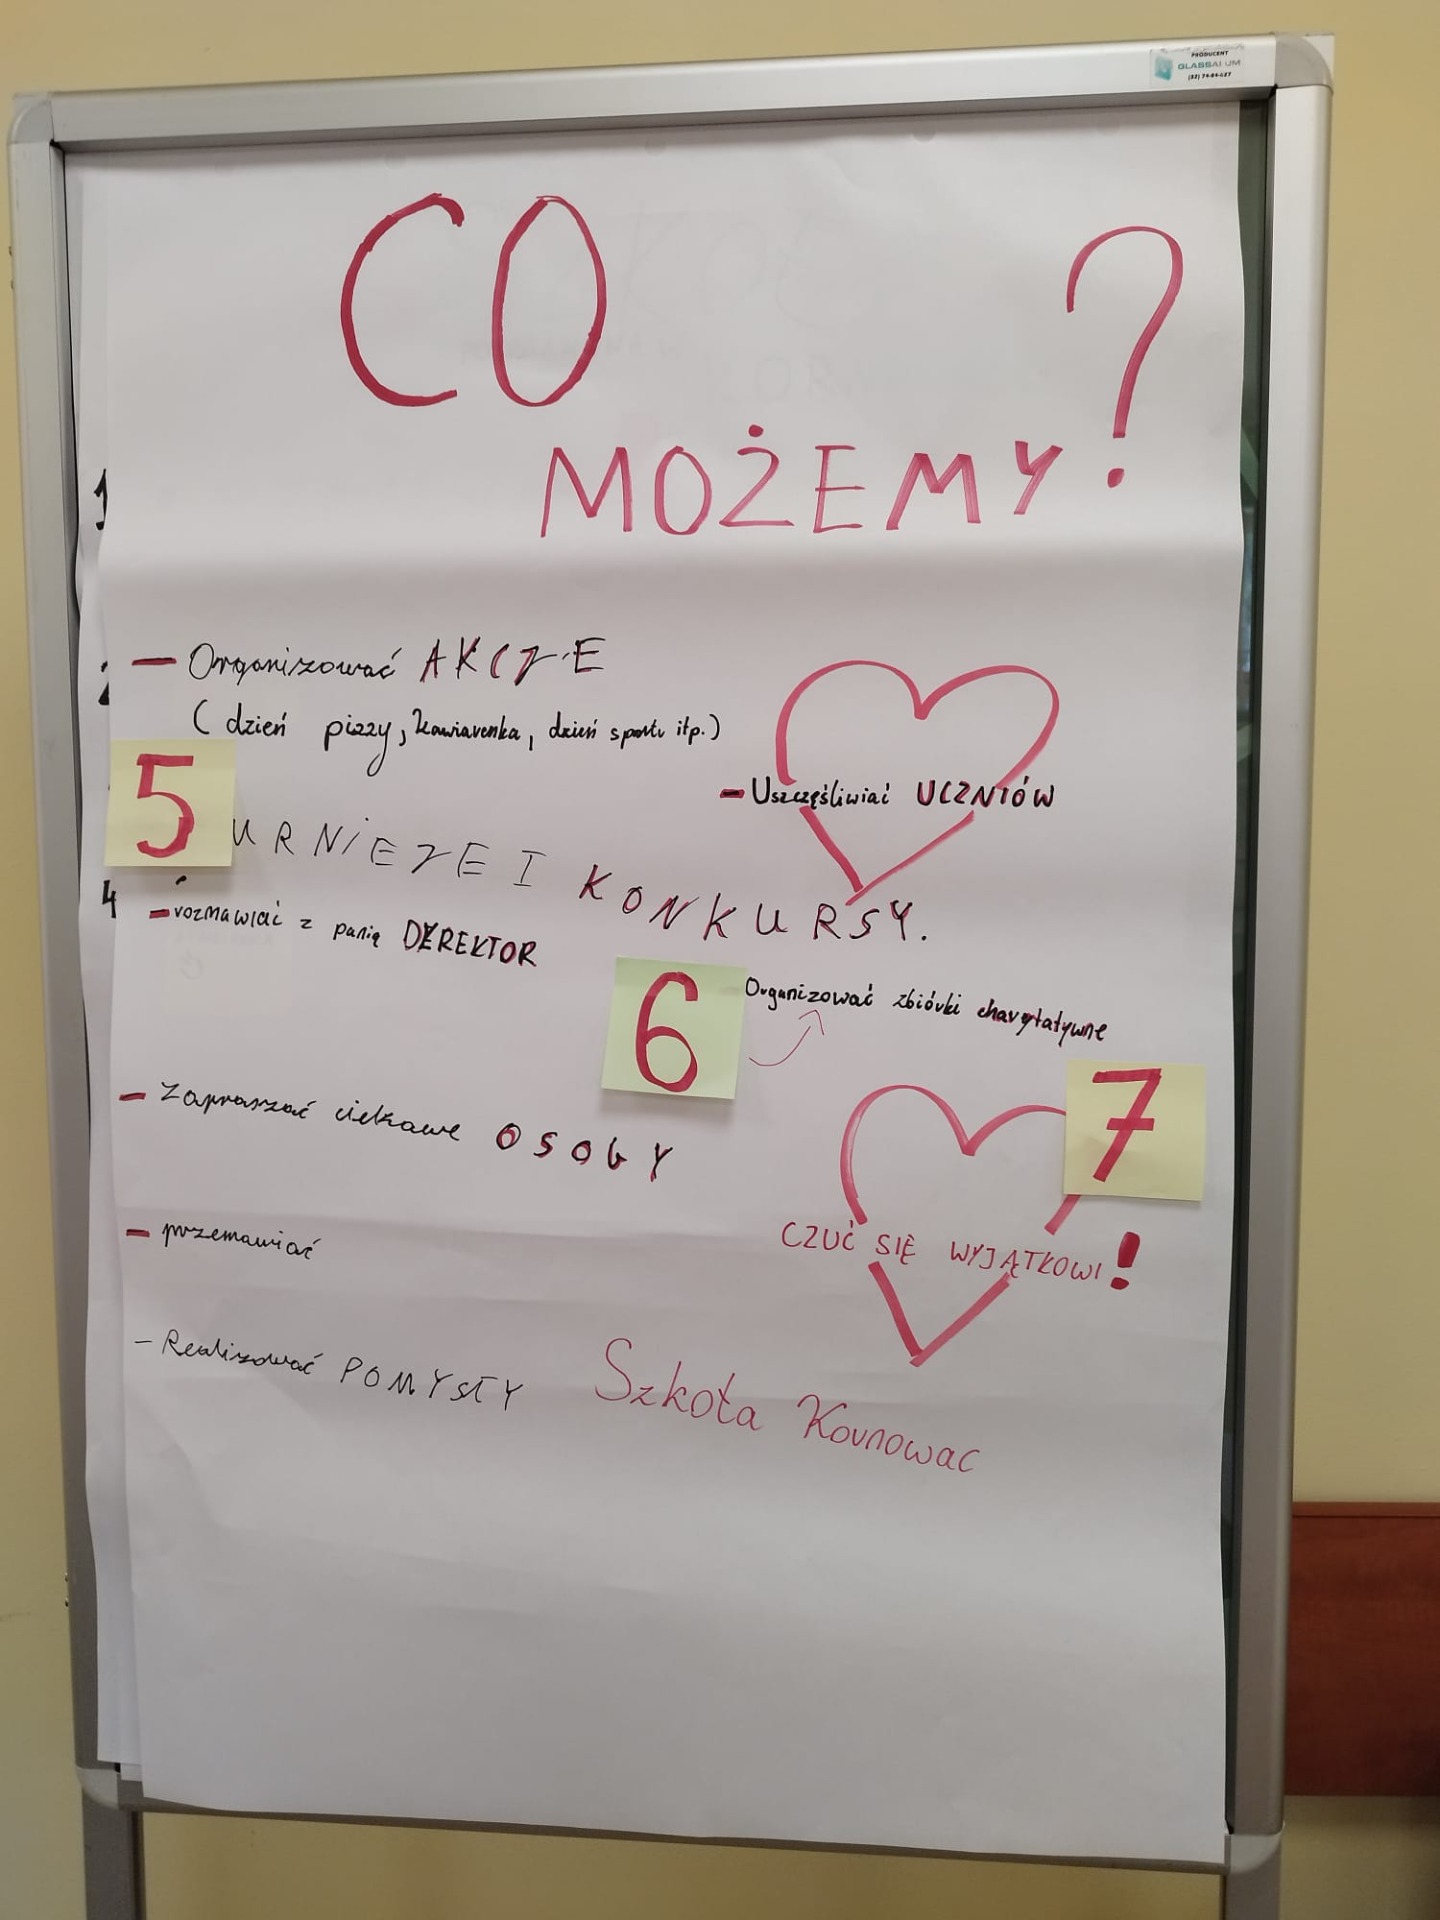 PRODUCENT
GLASSALUM
(32) 74-84-427
CO
MOŻEMY?
1
2
- Organizować AKCJE
( dzień pizzy, kawiarenka, dzień sportu itp.)
- Uszczęśliwiać UCZNIÓW
5
URNIEJE I KONKURSY.
4
- rozmawiać z panią DYREKTOR
6
- Organizować zbiórki charytatywne
7
- Zapraszać ciekawe OSOBY
- przemawiać
CZUĆ SIĘ WYJĄTKOWI!
- Realizować POMYSŁY
Szkoła Kounowac